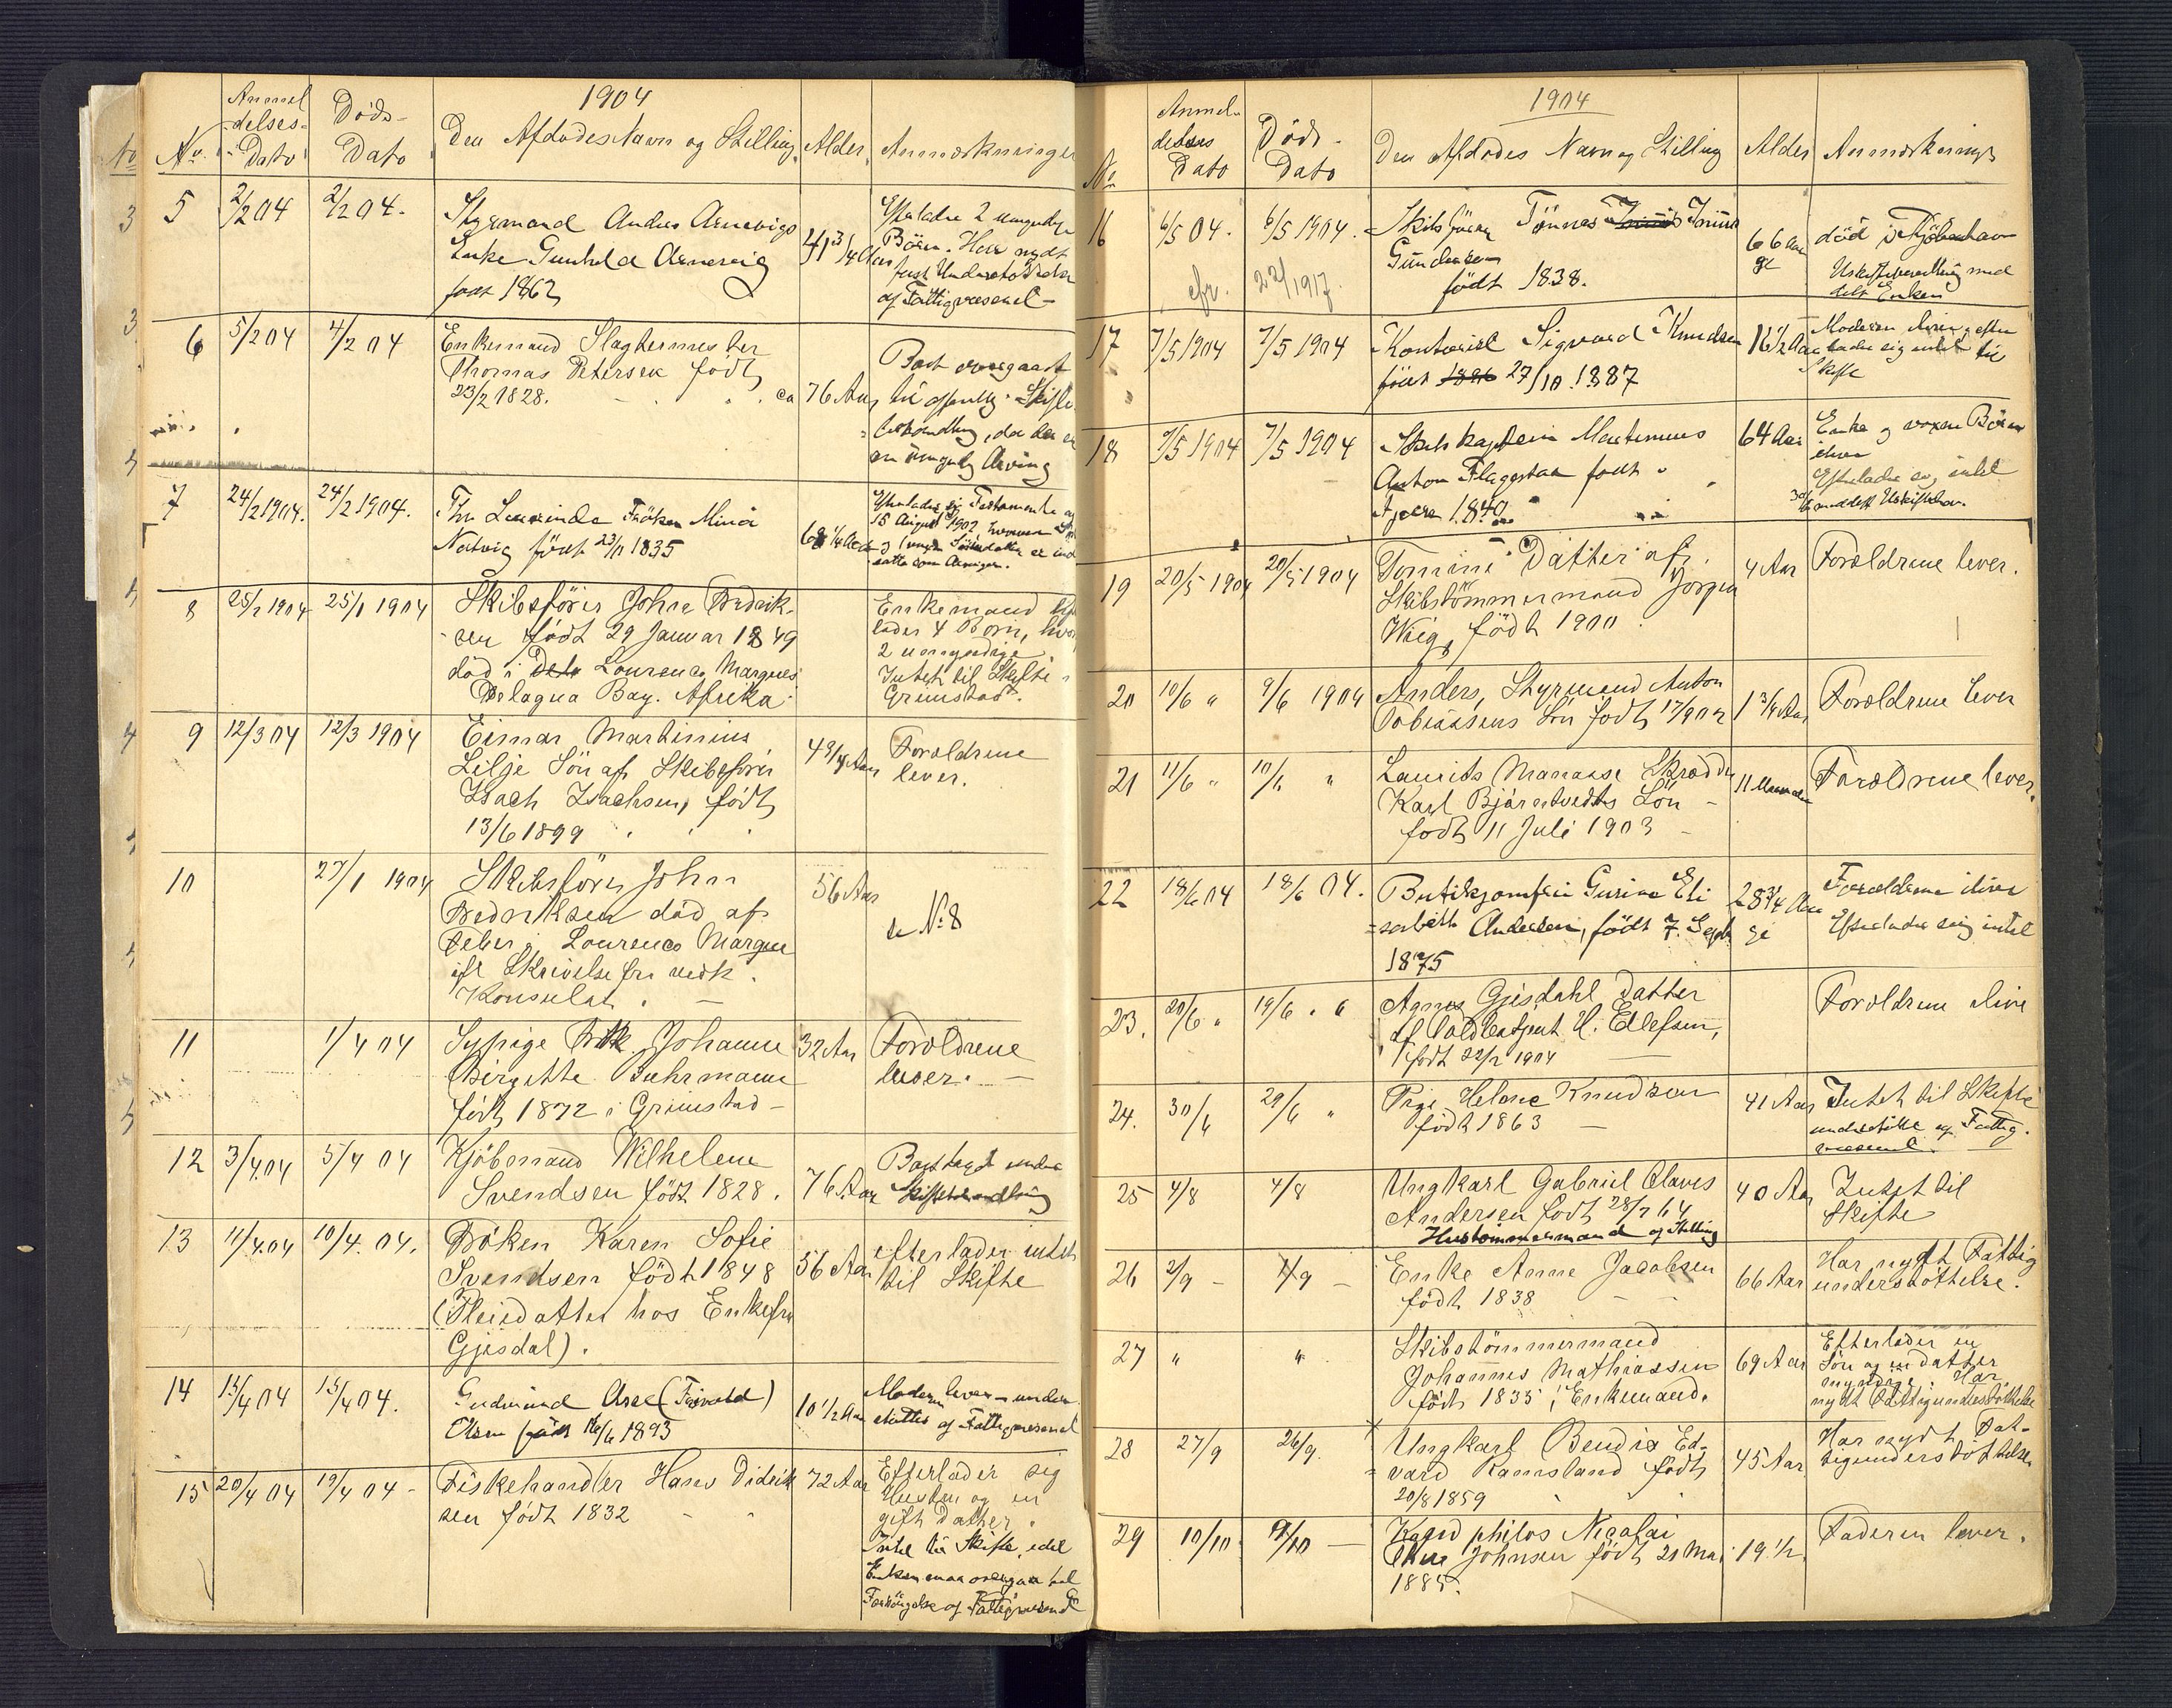 1904
No. Anmeldelses-Dato Døds-Dato Den Afdødes Navn og Stilling. Alder. Anmærkninger
5 2/2 04 2/2 04. Styrmand Anders Arnevigs
Enke Gunhild Arnevig
født 1862
41 3/4 Aar
Efterlader 2 umyndige
Börn. Har nydt
fast Understøttelse
af Fattigvæsenet –
6 5/2 04 4/2 04 Enkemand Slagtermester
Thomas Petersen født
23/2 1828. ca 76 Aar
Boet overgaaet
til offentlig Skifte-
behandling, da der er
en umyndig Arving
7 24/2 1904. 24/2 1904. Frk Laurinde Fröken Mina
Natvig födt 23/11 1835
68 1/4 Aar
Efterlader sig Testamente af
15 August 1902, hvorved
satte som Arvinger.
8 25/2 1904 25/1 1904 Skibsförer John Fredrik-
sen født 29 Januar 1849
död i Lourenco Marques
Delagua Bay. Afrika.
Enkemand efter-
lader 4 Børn, hvoraf
2 umyndige.
Intet til Skifte i
Grimstad.
9 12/3 04 12/3 1904 Einar Martinius
Lilje Sön af Skibsförer
Isach Isachsen, født
13/6 1899
4 3/4 Aar
Forældrene
lever.
10 27/1 1904 Skibsförer John
Fredriksen död af
Feber i Lourenco Marques
ifl Skrivelse fra vedk.
Konsulat. –
56 Aar
se No 8
11 1/4 04 Sypige Johanne
Birgitte Fuhrmann
født 1872 i Grimstad –
32 Aar
Forældrene
lever. –
12 3/4 04 5/4 04 Kjöbmand Wilhelm
Svendsen født 1828.
76 Aar
Boet taget under
Skiftebehandling
13 11/4 04 10/4. 04. Fröken Karen Sofie
Svendsen født 1848
(Pleiedatter hos Enkefru
Gjesdal).
56 Aar
efterlader intet
til Skifte
14 15/4 04 15/4 04. Gudmund Aree (Trivold)
Olsen födt 16/6 1893
10 1/2 Aar
Moderen lever – under-
støttet af Fattigvæsenet
15 20/4 04 19/4 04 – Fiskehandler Hans Didrik
sen født 1832
72 Aar
Efterlader sig
Hustru og en
gift Datter.
Intet til Skifte, idet
Enken maa overgaa til
Forsörgelse af Fattigvæsenet
1904
No Anmel-delses Dato Døds-Dato Den Afdødes Navn og Stilling Alder Anmærkninger
16 6/5 04. 6/5 1904. Skibsförer Tönnes Tönnes
Gundersen
født 1838.
cfr. 22/1917.
66 Aar
gl
död i Kjöbenhavn
Uskiftebevilling med
delt Enken
17 7/5 1904 7/5 1904 Kontorist Sigvard Knudsen
födt 1886 27/10 1887
16 1/2 Aar
Moderen ilive, efter
lader sig intet til
Skifte
18 7/5 1904 7/5 1904 Skibskaptein Martinius
Anton Flagestad født
Tjøre 1840
64 Aar
Enke og voxne Börn
ilive
Efterlader sig intet
meddelt Uskiftebev.
19 20/5 1904 20/5 1904 Tomine Datter af
Skibstömmermand Jörgen
Wiig, født 1900.
4 Aar
Forældrene lever.
20 10/6 " 9/6 1904 Anders, Styrmand Anton
Tobiassens Sön født 17/9 02
1 3/4 Aar
Forældrene lever
21 11/6 " 10/6 " Laurits Manasse Skrædder
Karl Bjårntvedts Sön –
født 11 Juli 1903 –
11 Maaneder
Forældrene lever.
22 18/6 04 18/6 04. Butikjomfru Gurine Eli
=sabeth Andersen, født 7. Septbr
1875
28 3/4 Aar
gl
Forældrene ilive
Efterlader sig intet
23. 20/6 " 19/6 " " Agnes Gjesdahl Datter
af Toldbetjent H. Ellefsen,
født 22/2 1904
Forældrene ilive
24. 30/6 29/6 " Pige Helene Knudsen
født 1863 –
41 Aar
Intet til Skifte
understöttet af Fattig-
væsenet. –
25 4/8 4/8 Ungkarl Gabriel Olaves
Andersen født 28/7 64
Hustömmermand af Stilling
40 Aar
Intet til
Skifte
26 2/9 – 1/9 – Enke Anne Jacobsen
født 1838 –
66 Aar
Har nydt Fattig
understöttelse.
27 " " Skibstömmermand
Johannes Mathiassen
født 1835, Enkemand.
69 Aar
Efterlader en
Sön og en datter
myndige. Har
nydt Fattigunderstöttelse
28 27/9 26/9. Ungkarl Bendix Ed-
vard Ramsland født
20/8 1859
45 Aar
Har nydt Fat-
tigunderstöttelse
29 10/10 9/10 – Kand philos Nicolai
Johnsen født 21 Mai
1885.
19 1/2
Faderen lever.